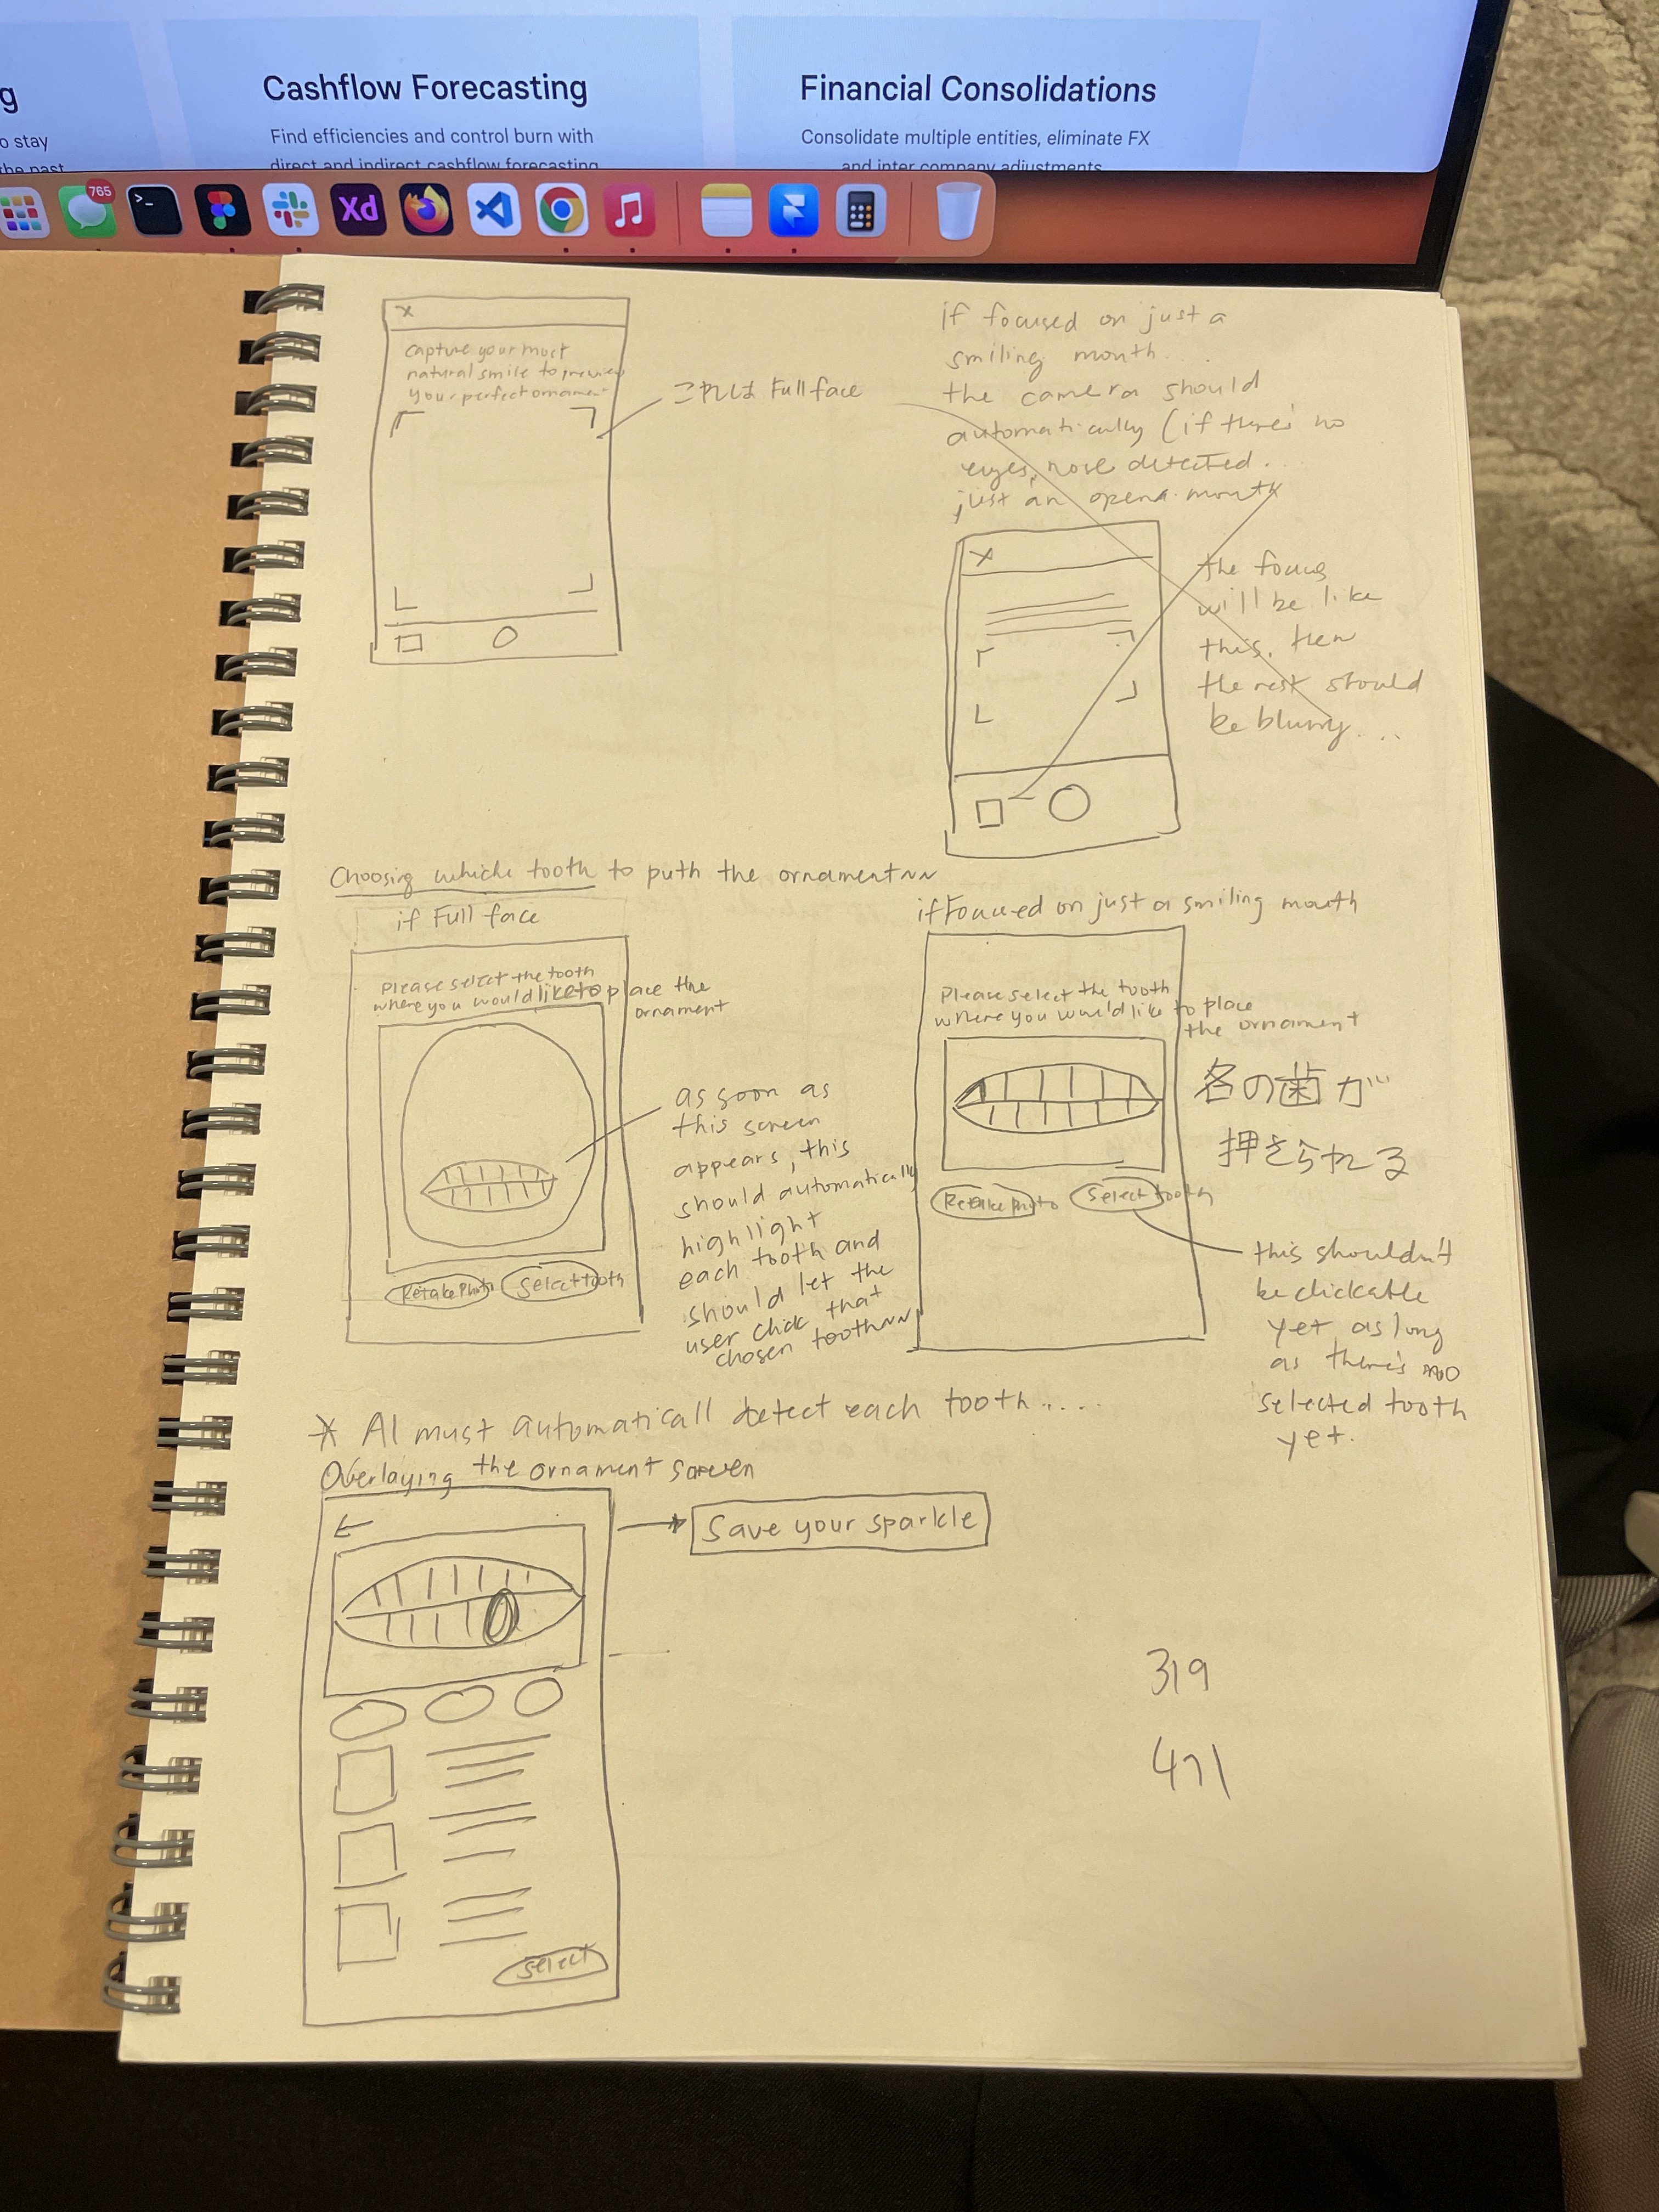 g
o stay
the past
Cashflow Forecasting
Find efficiencies and control burn with
direct and indirect cashflow forecasting
Financial Consolidations
Consolidate multiple entities, eliminate FX
and inter company adjustments
765
Xd
x
capture your most
natural smile to preview
your perfect ornament
これは Full face
if focused on just a
smiling mouth...
the camera should
automatically (if there's no
eyes, nose detected...
just an opena mouth
x
the focus
will be like
this, then
the rest should
be blurry...
Choosing whiche tooth to puth the ornament~~
if Full face
Please select the tooth
where you would like to place the
ornament
Retake Photo
Select tooth
as soon as
this screen
appears, this
should automatically
highlight
each tooth and
should let the
user click that
chosen tooth~~
if Focused on just a smiling mouth
Please select the tooth
where you would like to place
the ornament
各の歯が
押きられる
Retake Photo
Select tooth
this shouldn't
be clickable
yet, as long
as there's no
selected tooth
yet.
* AI must automaticall detect each tooth.....
Overlaying the ornament screen
Save your sparkle
Select
319
471